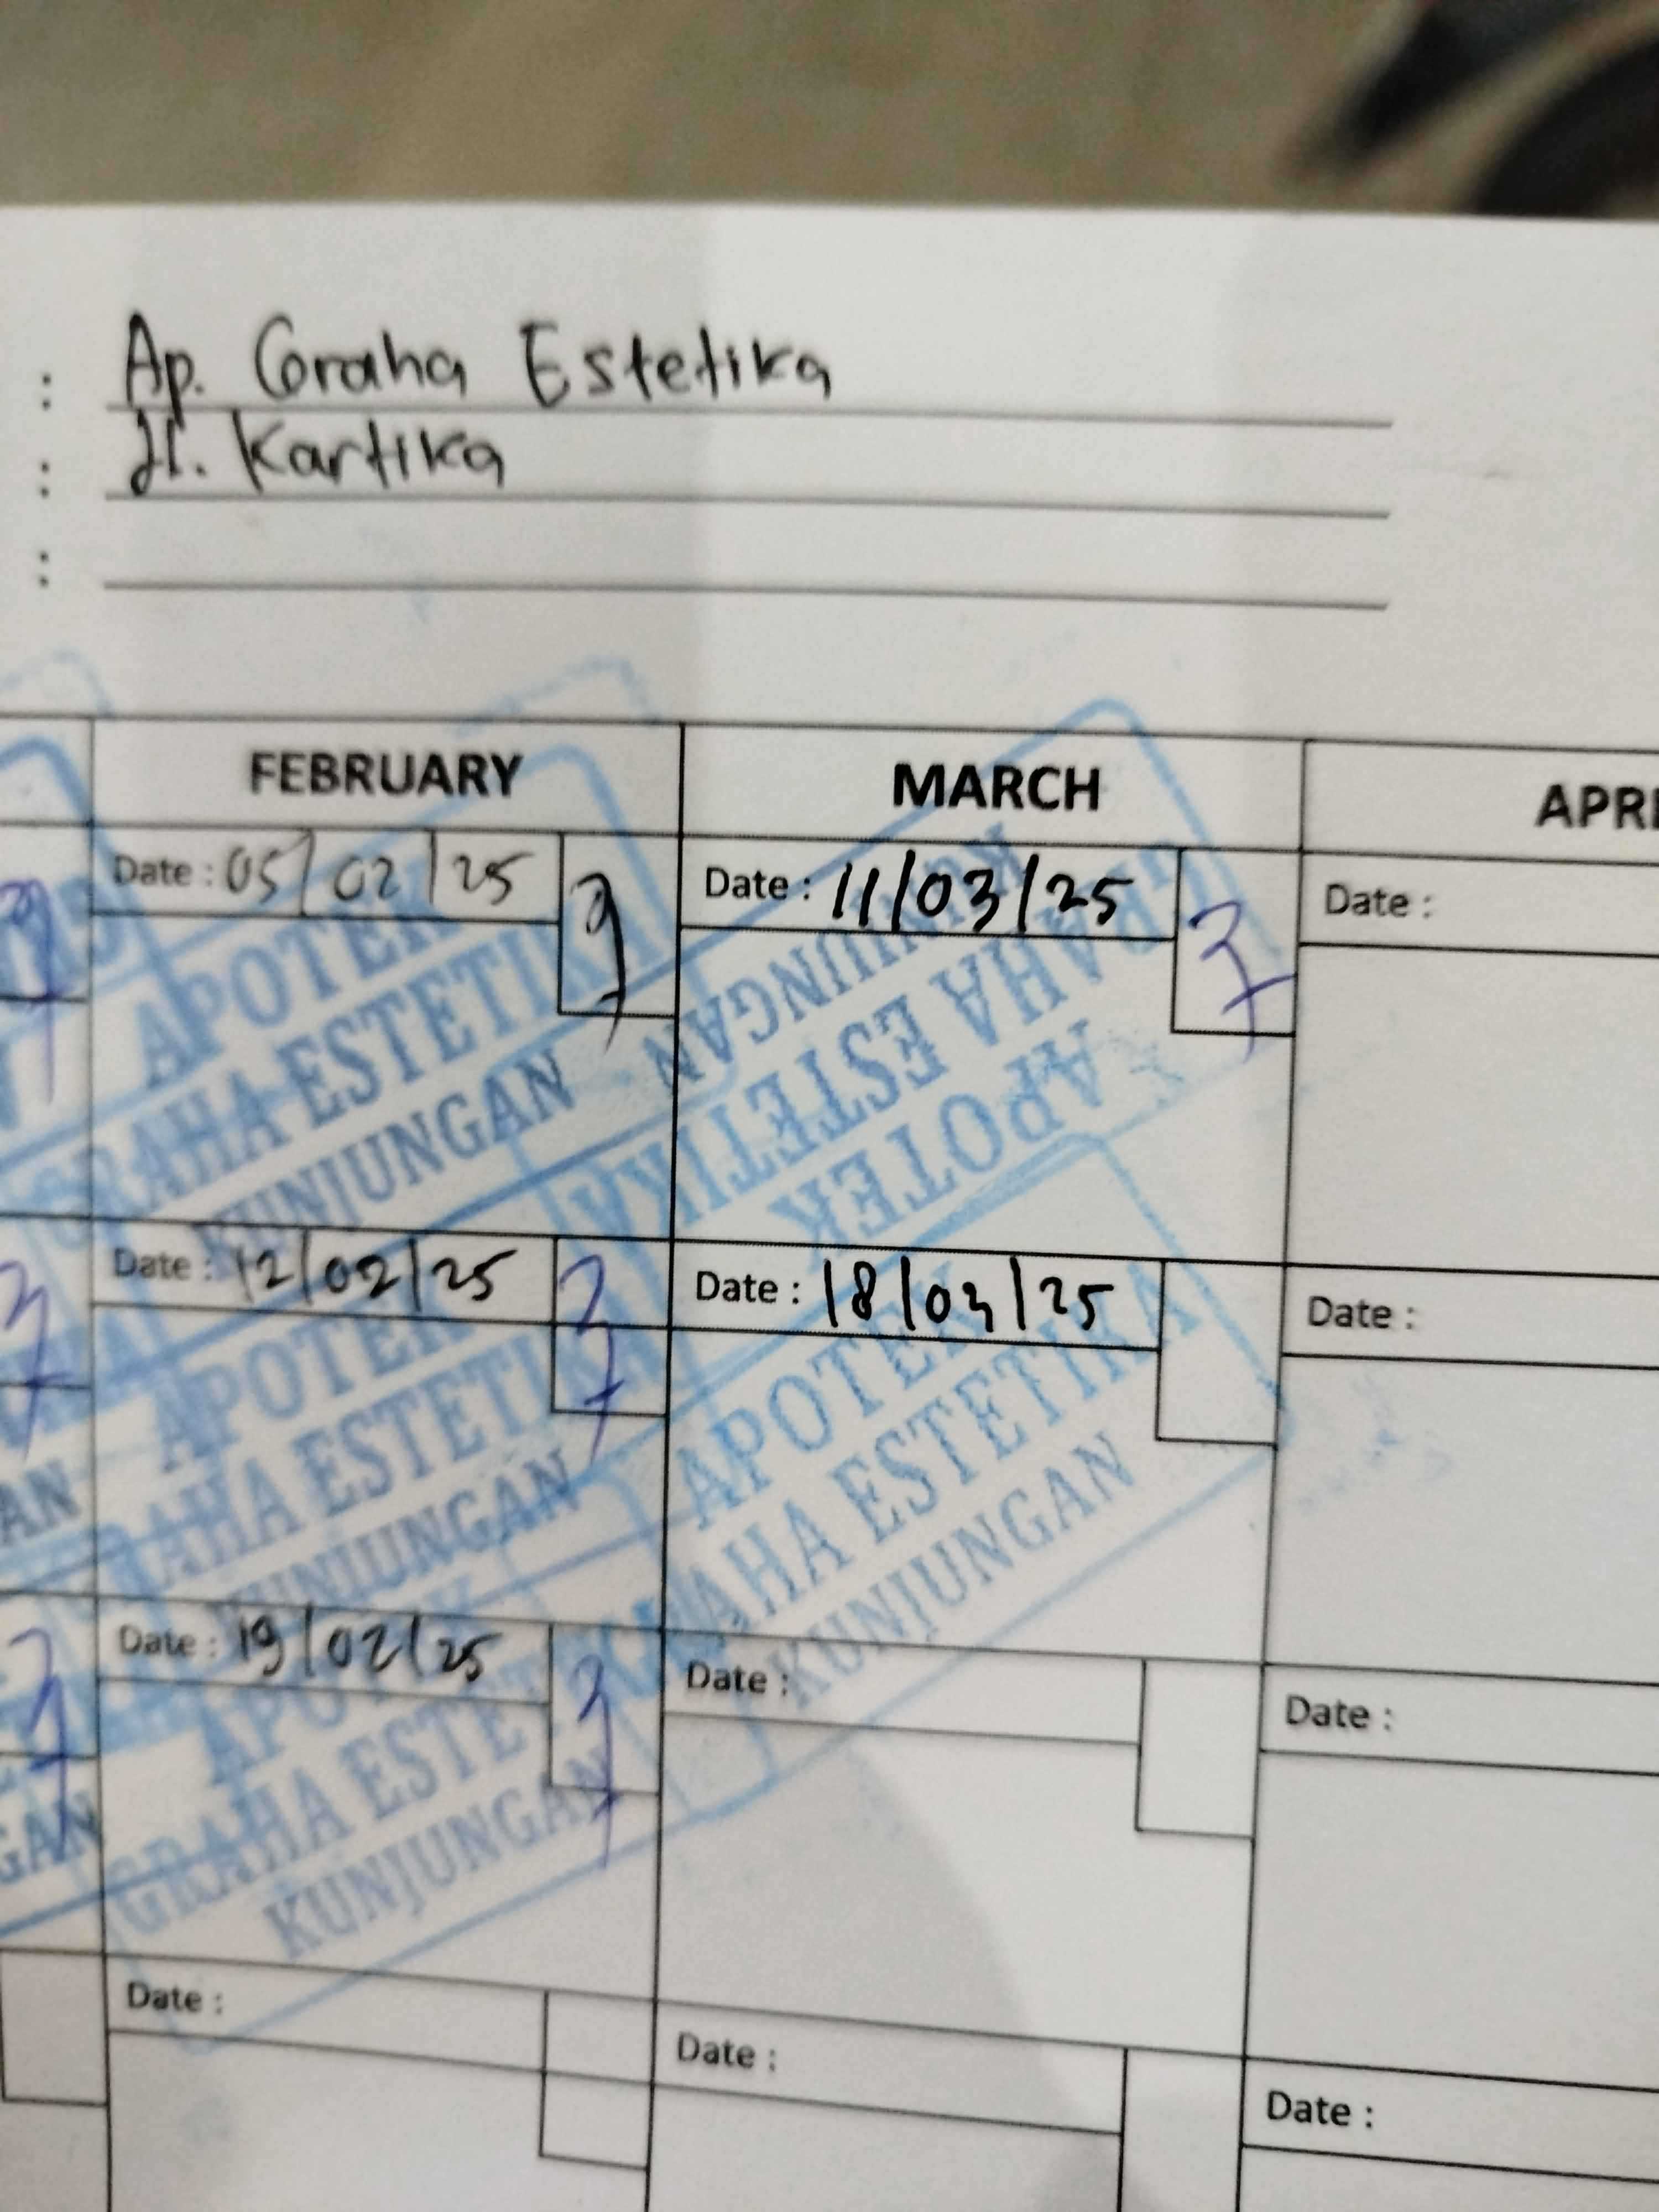 : Ap. Graha Estetika
: Jl. Kartika
:
FEBRUARY
MARCH
APRI
Date : 05/02/25
Date : 11/03/25
Date :
APOTEK
GRAHA ESTETIKA
KUNJUNGAN
APOTEK
GRAHA ESTETIKA
KUNJUNGAN
Date : 12/02/25
Date : 18/03/25
Date :
APOTEK
GRAHA ESTETIKA
KUNJUNGAN
APOTEK
GRAHA ESTETIKA
KUNJUNGAN
AN
Date : 19/02/25
Date :
Date :
APOTEK
GRAHA ESTETIKA
KUNJUNGAN
GAN
Date :
Date :
Date :